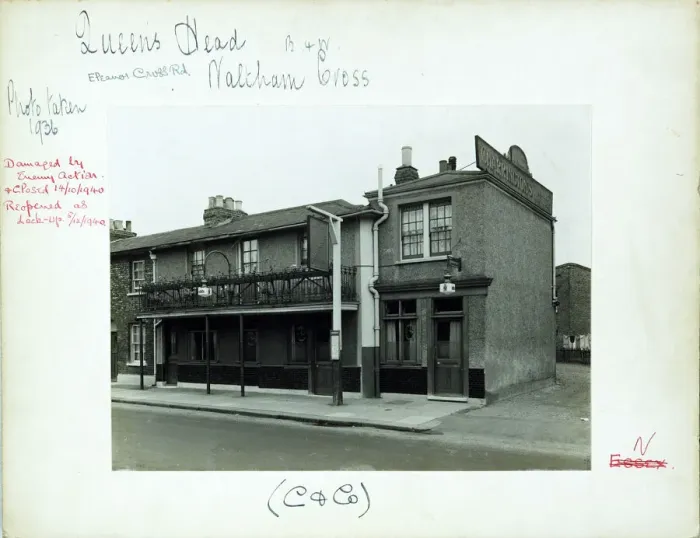 Queens Head B & W.
Eleanor Cross Rd. Waltham Cross
Photo taken
1936
Damaged by
Enemy Action.
& Closed 14/10/1940
Reopened as
Lock-Up 5/12/1940
N
Essex
(C & Co)